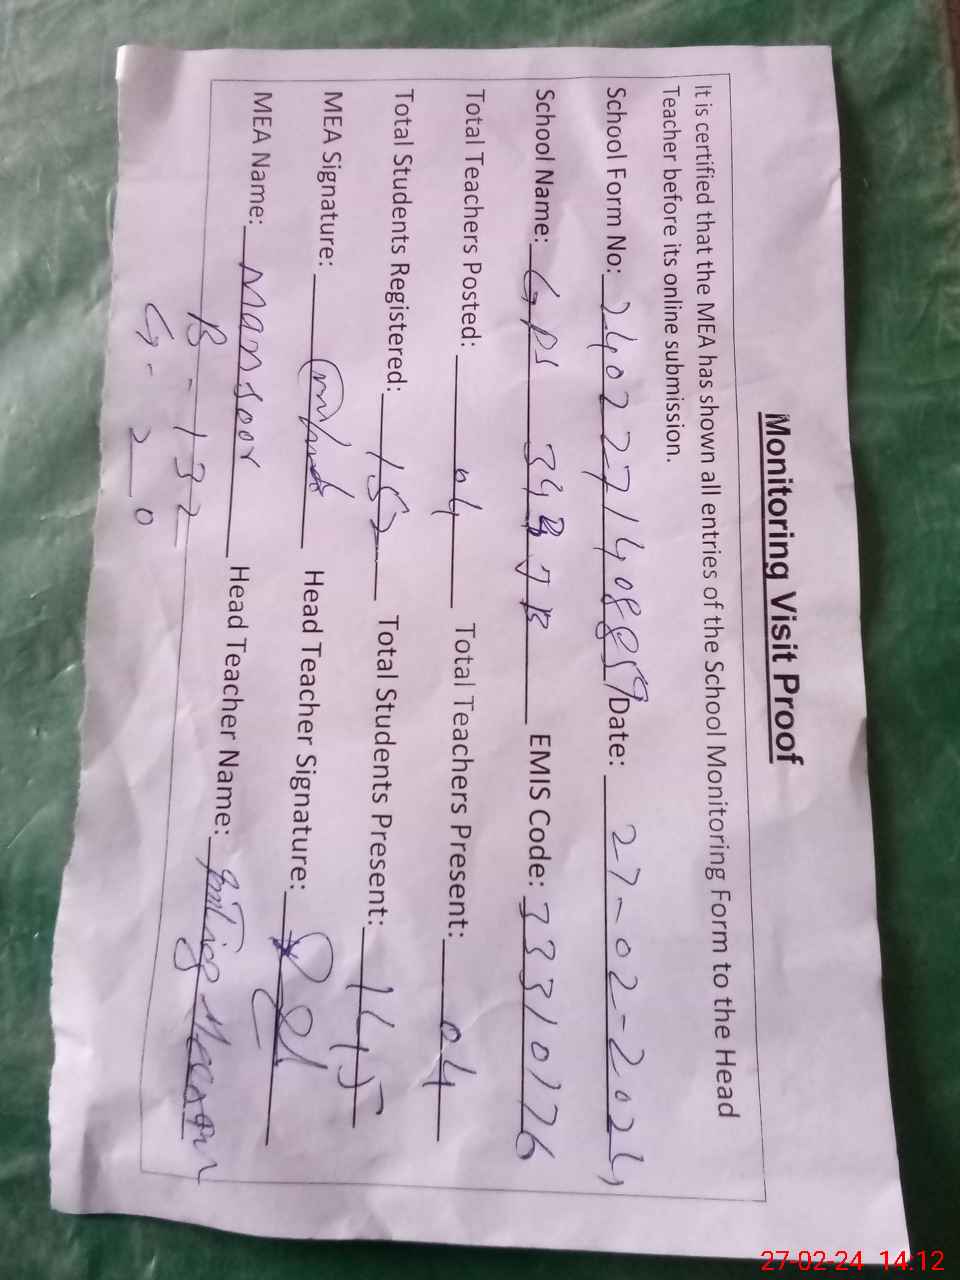 Monitoring Visit Proof
It is certified that the MEA has shown all entries of the School Monitoring Form to the Head
Teacher before its online submission.
School Form No: 2402271408859 Date: 27-02-2024
School Name: GPS 34 JB EMIS Code: 33310176
Total Teachers Posted: 04 Total Teachers Present: 04
Total Students Registered: 152 Total Students Present: 145
MEA Signature: Head Teacher Signature:
MEA Name: Mansoor Head Teacher Name:
B - 132
G - 20
27-02-24 14:12